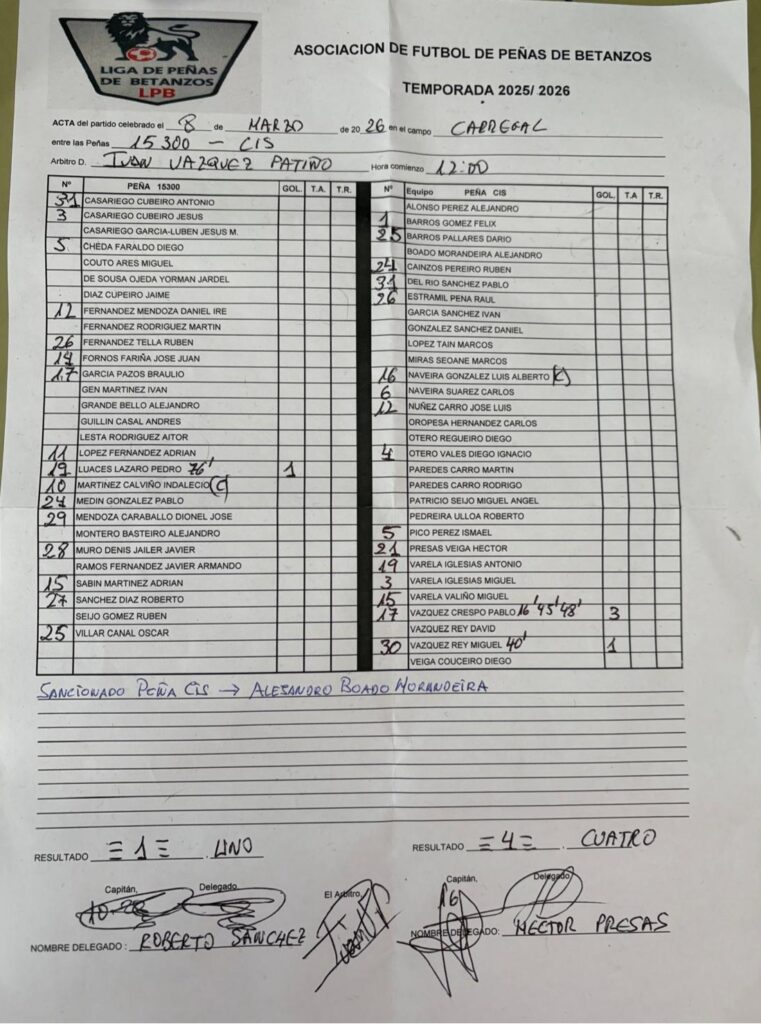 LIGA DE PEÑAS
DE BETANZOS
LPB
ASOCIACION DE FUTBOL DE PEÑAS DE BETANZOS
TEMPORADA 2025/ 2026
ACTA del partido celebrado el 8 de MARZO de 2026 en el campo CARREGAL
entre las Peñas 15300 - CIS
Arbitro D. IVAN VAZQUEZ PATIÑO Hora comienzo 12:00
Nº PEÑA 15300 GOL. T.A. T.R.
31 CASARIEGO CUBEIRO ANTONIO
3 CASARIEGO CUBEIRO JESUS
CASARIEGO GARCIA-LUBEN JESUS M.
5 CHEDA FARALDO DIEGO
COUTO ARES MIGUEL
DE SOUSA OJEDA YORMAN JARDEL
DIAZ CUPEIRO JAIME
12 FERNANDEZ MENDOZA DANIEL IRE
FERNANDEZ RODRIGUEZ MARTIN
26 FERNANDEZ TELLA RUBEN
14 FORNOS FARIÑA JOSE JUAN
17 GARCIA PAZOS BRAULIO
GEN MARTINEZ IVAN
GRANDE BELLO ALEJANDRO
GUILLIN CASAL ANDRES
LESTA RODRIGUEZ AITOR
11 LOPEZ FERNANDEZ ADRIAN
19 LUACES LAZARO PEDRO 76' 1
10 MARTINEZ CALVIÑO INDALECIO (C)
24 MEDIN GONZALEZ PABLO
29 MENDOZA CARABALLO DIONEL JOSE
MONTERO BASTEIRO ALEJANDRO
28 MURO DENIS JAILER JAVIER
RAMOS FERNANDEZ JAVIER ARMANDO
15 SABIN MARTINEZ ADRIAN
27 SANCHEZ DIAZ ROBERTO
SEIJO GOMEZ RUBEN
25 VILLAR CANAL OSCAR
Nº Equipo PEÑA CIS GOL. T.A T.R.
ALONSO PEREZ ALEJANDRO
1 BARROS GOMEZ FELIX
25 BARROS PALLARES DARIO
BOADO MORANDEIRA ALEJANDRO
24 CAINZOS PEREIRO RUBEN
31 DEL RIO SANCHEZ PABLO
26 ESTRAMIL PENA RAUL
GARCIA SANCHEZ IVAN
GONZALEZ SANCHEZ DANIEL
LOPEZ TAIN MARCOS
MIRAS SEOANE MARCOS
16 NAVEIRA GONZALEZ LUIS ALBERTO (C)
6 NAVEIRA SUAREZ CARLOS
12 NUÑEZ CARRO JOSE LUIS
OROPESA HERNANDEZ CARLOS
OTERO REGUEIRO DIEGO
4 OTERO VALES DIEGO IGNACIO
PAREDES CARRO MARTIN
PAREDES CARRO RODRIGO
PATRICIO SEIJO MIGUEL ANGEL
PEDREIRA ULLOA ROBERTO
5 PICO PEREZ ISMAEL
21 PRESAS VEIGA HECTOR
19 VARELA IGLESIAS ANTONIO
3 VARELA IGLESIAS MIGUEL
15 VARELA VALIÑO MIGUEL
17 VAZQUEZ CRESPO PABLO 16' 45' 48' 3
VAZQUEZ REY DAVID
30 VAZQUEZ REY MIGUEL 40' 1
VEIGA COUCEIRO DIEGO
SANCIONADO PEÑA CIS → ALEJANDRO BOADO MORANDEIRA
RESULTADO =1= UNO
RESULTADO =4= CUATRO
Capitán, Delegado
El Arbitro,
Capitán, Delegado
16
NOMBRE DELEGADO : ROBERTO SÁNCHEZ
NOMBRE DELEGADO: HÉCTOR PRESAS